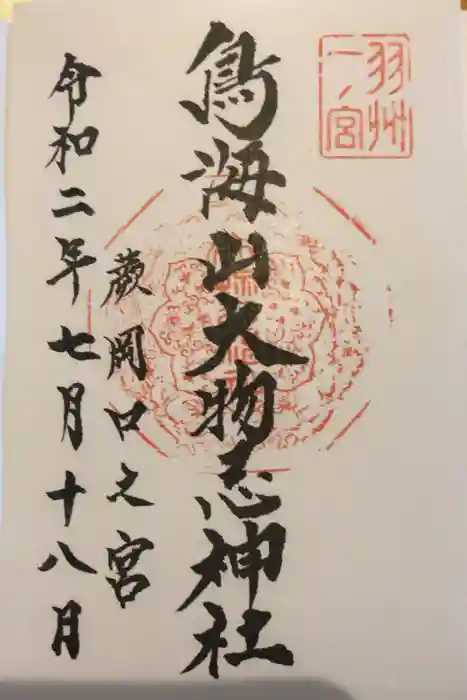 羽州
一ノ宮
鳥海山大物忌神社
蕨岡口之宮
令和二年七月十八日